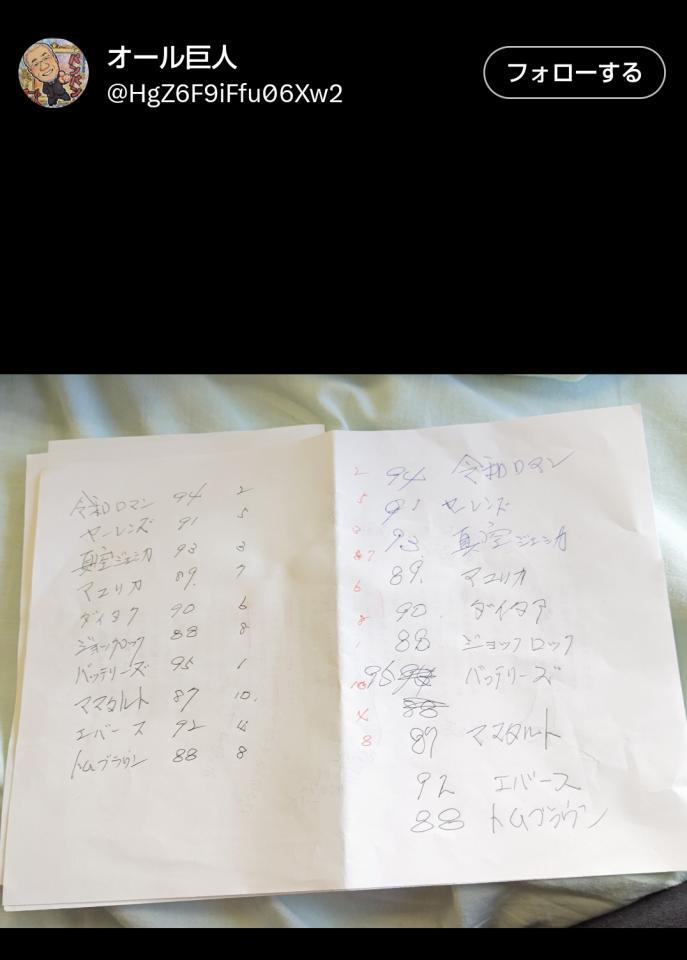 オール巨人
@HgZ6F9iFfu06Xw2
フォローする
令和ロマン 94 2
ヤーレンズ 91 5
真空ジェシカ 93 3
マユリカ 89. 7
ダイタク 90 6
ジョックロック 88 8
バッテリーズ 95 1
ママタルト 87 10.
エバース 92 4
トムブラウン 88 8
2 94 令和ロマン
5 91 ヤーレンズ
3 93. 真空ジェシカ
7 89. マユリカ
6 90. ダイタク
8 88 ジョックロック
1 95 バッテリーズ
10 87 ママタルト
4 92 エバース
8 88 トムブラウン